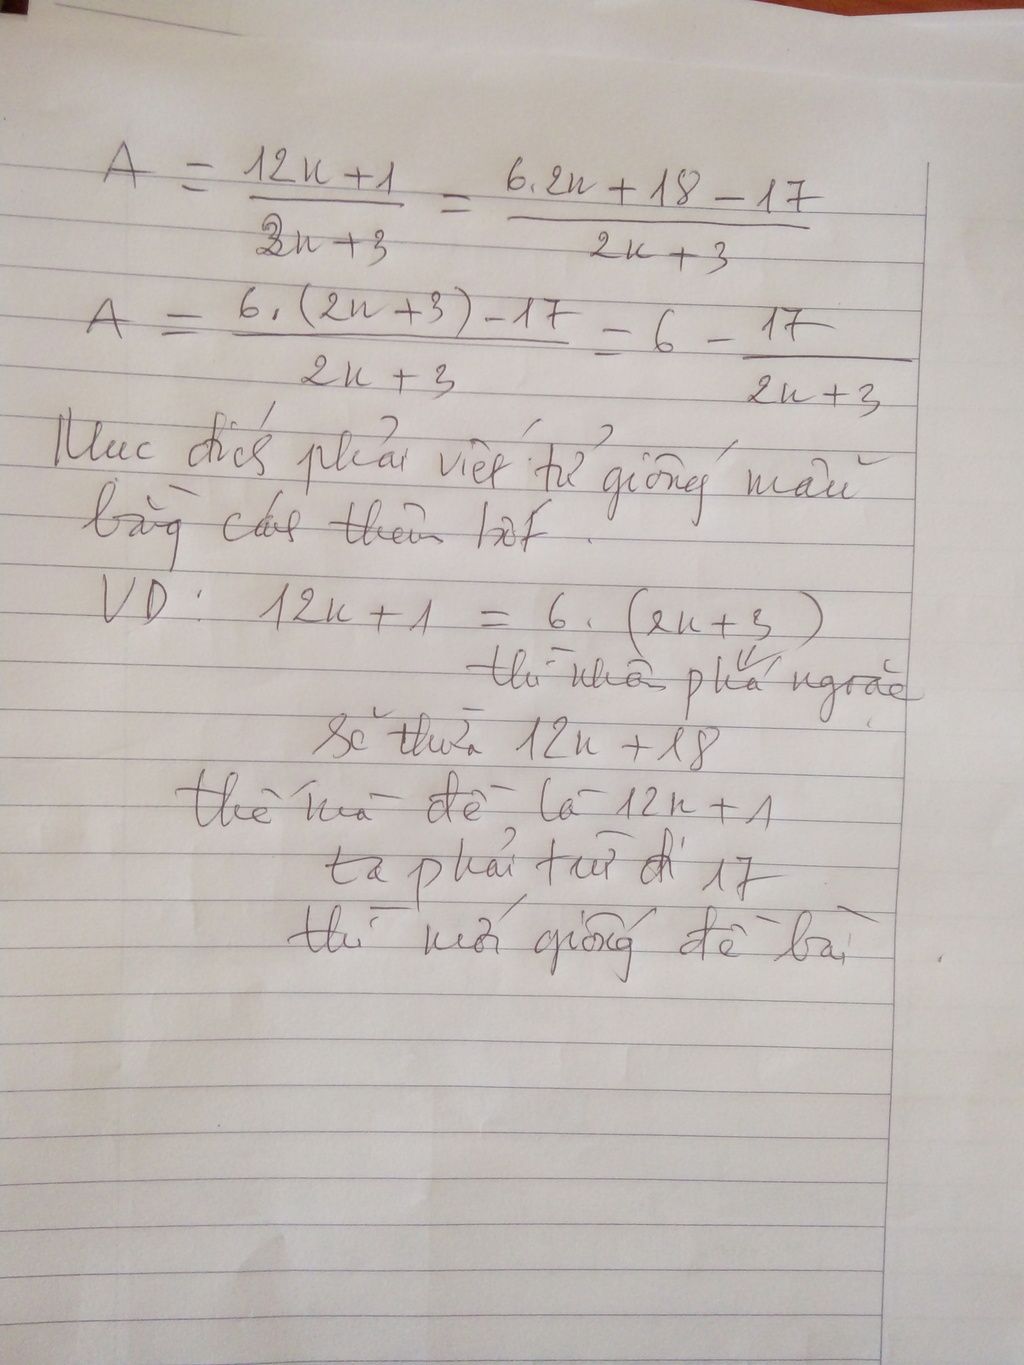 A = 12n + 1 / 2n + 3 = 6.2n + 18 - 17 / 2n + 3
A = 6.(2n + 3) - 17 / 2n + 3 = 6 - 17 / 2n + 3
Mục đích phải viết tử giống mẫu
bằng cách thêm bớt.
VD: 12n + 1 = 6.(2n + 3)
thì nhân phá ngoặc
sẽ thừa 12n + 18
thế mà đề là 12n + 1
ta phải trừ đi 17
thì mới giống đề bài